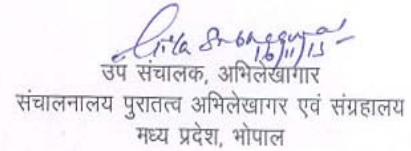 16/11/15
उप संचालक, अभिलेखागार
संचालनालय पुरातत्व अभिलेखागर एवं संग्रहालय
मध्य प्रदेश, भोपाल